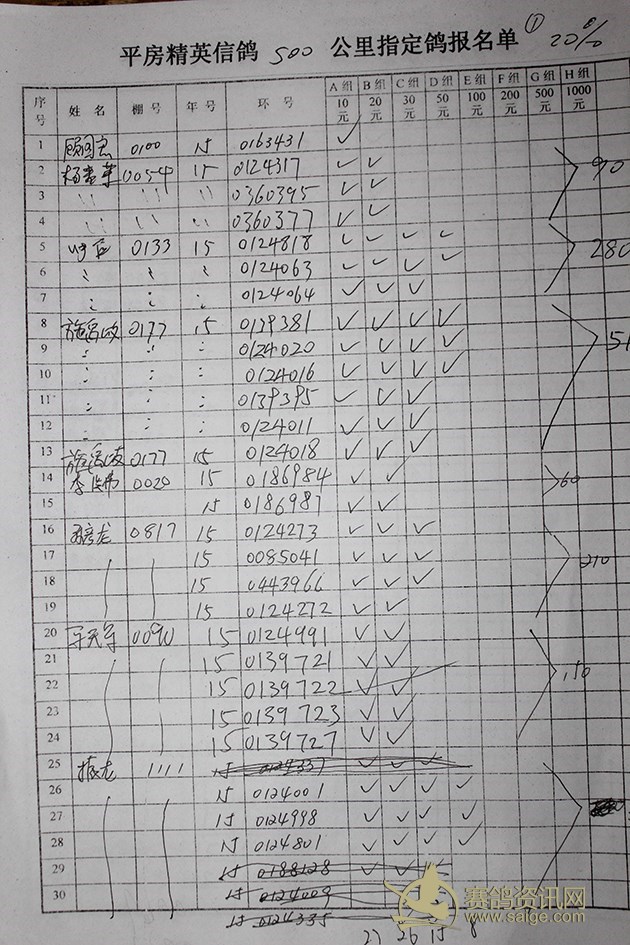 ① 20%
平房精英信鸽 500 公里指定鸽报名单
序号 姓名 棚号 年号 环号 A组10元 B组20元 C组30元 D组50元 E组100元 F组200元 G组500元 H组1000元
1 0100 15 0163431 ✓
2 0054 15 0124317 ✓ ✓ 90
3 〃 〃 〃 0360395 ✓ ✓
4 〃 〃 〃 0360377 ✓ ✓
5 0133 15 0124818 ✓ ✓ ✓ ✓ 280
6 〃 〃 〃 0124063 ✓ ✓ ✓ ✓
7 〃 〃 〃 0124064 ✓ ✓ ✓
8 0177 15 0139381 ✓ ✓ ✓ ✓
9 〃 〃 〃 0124020 ✓ ✓ ✓ ✓ 51
10 〃 〃 〃 0124016 ✓ ✓ ✓ ✓
11 〃 〃 〃 0139395 ✓ ✓ ✓
12 〃 〃 0124011 ✓ ✓ ✓
13 0177 15 0124018 ✓ ✓ ✓
14 0020 15 0186984 ✓ ✓ 60
15 15 0186987 ✓ ✓
16 0817 15 0124273 ✓ ✓ ✓
17 15 0085041 ✓ ✓ ✓ 210
18 15 0443966 ✓ ✓ ✓
19 15 0124272 ✓ ✓
20 0090 15 0124991 ✓ ✓
21 15 0139721 ✓ ✓
22 15 0139722 ✓ ✓ 150
23 15 0139723 ✓ ✓
24 15 0139727 ✓ ✓
25 1111 15 0124337 ✓ ✓ ✓
26 15 0124001 ✓ ✓ ✓ ✓
27 15 0124998 ✓ ✓ ✓ ✓
28 15 0124801 ✓ ✓ ✓ ✓
29 15 0188128 ✓ ✓ ✓
30 15 0124009
15 0124335
27 26 15 8
赛鸽资讯网
www.saige.com